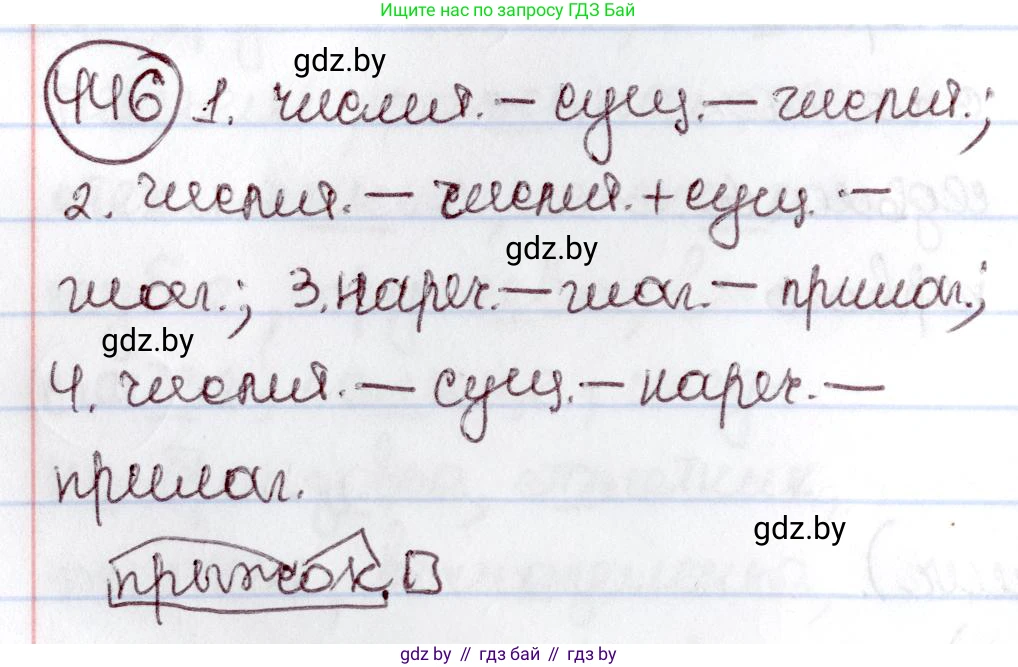 Ищите нас по запросу ГДЗ Бай
gdz.by
446 1. числит. — сущ. — числит.;
2. числит. — числит. + сущ. —
gdz.by
глаг.; 3. нареч. — глаг. — прилаг.;
gdz.by
4. числит. — сущ. — нареч. —
прилаг.
gdz.by
прыжок
gdz.by // гдз бай // гдз by